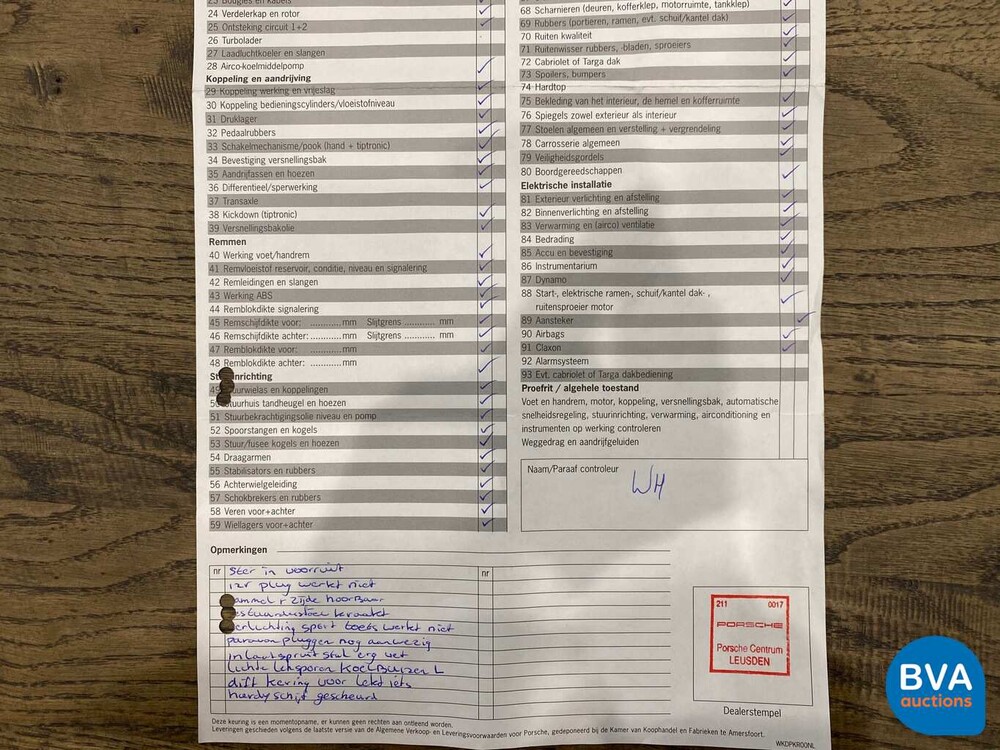 23 Bougies en kabels
24 Verdelerkap en rotor
25 Ontsteking circuit 1+2
26 Turbolader
27 Laadluchtkoeler en slangen
28 Airco-koelmiddelpomp
Koppeling en aandrijving
29 Koppeling werking en vrijeslag
30 Koppeling bedieningscylinders/vloeistofniveau
31 Druklager
32 Pedaalrubbers
33 Schakelmechanisme/pook (hand + tiptronic)
34 Bevestiging versnellingsbak
35 Aandrijfassen en hoezen
36 Differentieel/sperwerking
37 Transaxle
38 Kickdown (tiptronic)
39 Versnellingsbakolie
Remmen
40 Werking voet/handrem
41 Remvloeistof reservoir, conditie, niveau en signalering
42 Remleidingen en slangen
43 Werking ABS
44 Remblokdikte signalering
45 Remschijfdikte voor: ...........mm Slijtgrens ........... mm
46 Remschijfdikte achter: ...........mm Slijtgrens ........... mm
47 Remblokdikte voor: ...........mm
48 Remblokdikte achter: ...........mm
St inrichting
49 uurwielas en koppelingen
50 Stuurhuis tandheugel en hoezen
51 Stuurbekrachtigingsolie niveau en pomp
52 Spoorstangen en kogels
53 Stuur/fusee kogels en hoezen
54 Draagarmen
55 Stabilisators en rubbers
56 Achterwielgeleiding
57 Schokbrekers en rubbers
58 Veren voor+achter
59 Wiellagers voor+achter
68 Scharnieren (deuren, kofferklep, motorruimte, tankklep)
69 Rubbers (portieren, ramen, evt. schuif/kantel dak)
70 Ruiten kwaliteit
71 Ruitenwisser rubbers, -bladen, sproeiers
72 Cabriolet of Targa dak
73 Spoilers, bumpers
74 Hardtop
75 Bekleding van het interieur, de hemel en kofferruimte
76 Spiegels zowel exterieur als interieur
77 Stoelen algemeen en verstelling + vergrendeling
78 Carrosserie algemeen
79 Veiligheidsgordels
80 Boordgereedschappen
Elektrische installatie
81 Exterieur verlichting en afstelling
82 Binnenverlichting en afstelling
83 Verwarming en (airco) ventilatie
84 Bedrading
85 Accu en bevestiging
86 Instrumentarium
87 Dynamo
88 Start-, elektrische ramen-, schuif/kantel dak- ,
ruitensproeier motor
89 Aansteker
90 Airbags
91 Claxon
92 Alarmsysteem
93 Evt. cabriolet of Targa dakbediening
Proefrit / algehele toestand
Voet en handrem, motor, koppeling, versnellingsbak, automatische
snelheidsregeling, stuurinrichting, verwarming, airconditioning en
instrumenten op werking controleren
Weggedrag en aandrijfgeluiden
Naam/Paraaf controleur
WH
Opmerkingen
nr ster in voorruit nr
12v plug werkt niet
ammel r zijde hoorbaar
estuurderstoel kraakt
erlichting sport toets werkt niet
pluggen nog aanwezig
inlaatspruitstuk erg vet
lichte leksporen Koelbuizen L
diff kering voor lekt iets
hardyschijf gescheurd
211 0017
PORSCHE
Porsche Centrum
LEUSDEN
Dealerstempel
Deze keuring is een momentopname, er kunnen geen rechten aan ontleend worden.
Leveringen geschieden volgens de laatste versie van de Algemene Verkoop- en Leveringsvoorwaarden voor Porsche, gedeponeerd bij de Kamer van Koophandel en Fabrieken te Amersfoort.
WKDPKR00NL
BVA
auctions